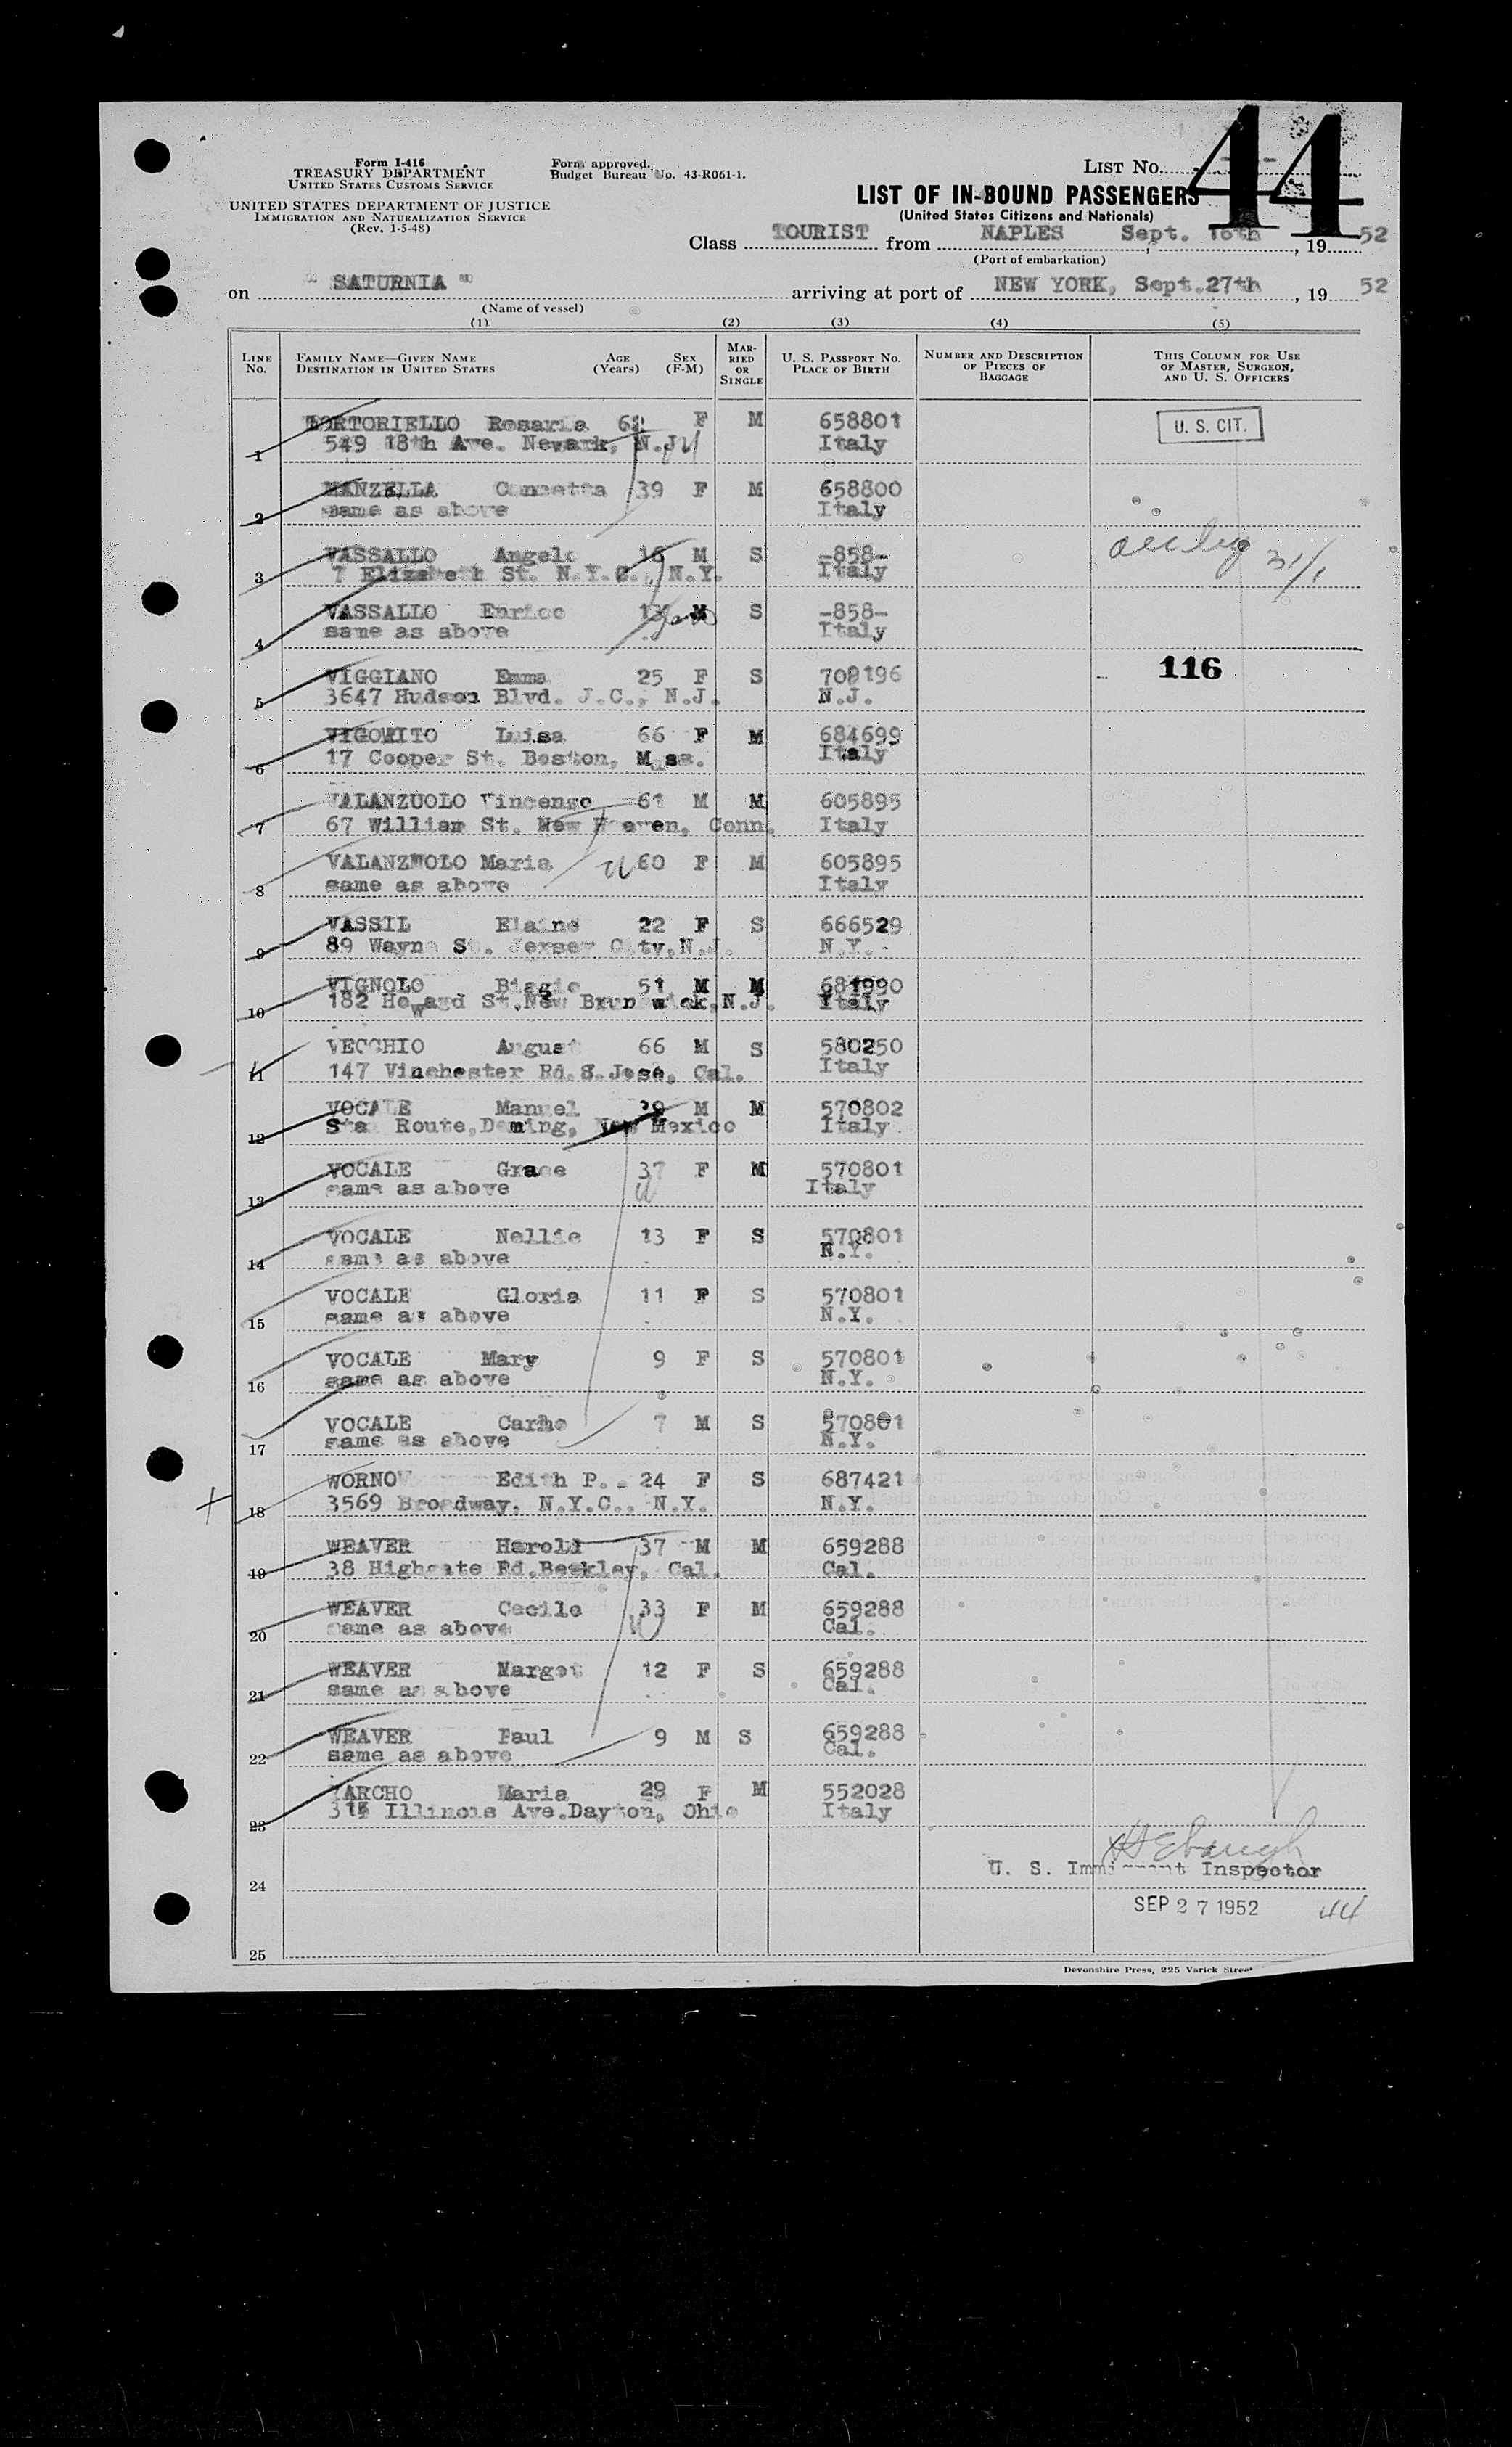 44
Form I-416
TREASURY DEPARTMENT
UNITED STATES CUSTOMS SERVICE
UNITED STATES DEPARTMENT OF JUSTICE
IMMIGRATION AND NATURALIZATION SERVICE
(Rev. 1-5-48)
Form approved.
Budget Bureau No. 43-R061-1.
LIST NO.
LIST OF IN-BOUND PASSENGERS
(United States Citizens and Nationals)
Class TOURIST from NAPLES Sept. 16th, 19 52
(Port of embarkation)
on " SATURNIA " arriving at port of NEW YORK, Sept.27th, 19 52
(Name of vessel)
(1) (2) (3) (4) (5)
LINE NO. FAMILY NAME—GIVEN NAME DESTINATION IN UNITED STATES AGE (Years) SEX (F-M) MARRIED OR SINGLE U. S. PASSPORT NO. PLACE OF BIRTH NUMBER AND DESCRIPTION OF PIECES OF BAGGAGE THIS COLUMN FOR USE OF MASTER, SURGEON, AND U. S. OFFICERS
TORTORIELLO Rosaria F M 658801 U. S. CIT.
1 549 18th Ave. Newark, N.J. Italy
MANZELLA Concetta 39 F M 658800
2 same as above Italy
VASSALLO Angelo 16 M S -858- 31/1
3 7 Elizabeth St. N.Y.C., N.Y. Italy
VASSALLO Enrico M S -858-
4 same as above Italy
VIGGIANO Emma 25 F S 708196 116
5 3647 Hudson Blvd. J.C., N.J. N.J.
VIGORITO Luisa 66 F M 684699
6 17 Cooper St. Boston, Mass. Italy
VALANZUOLO Vincenzo 61 M M 605895
7 67 William St. New Heaven, Conn. Italy
VALANZUOLO Maria 60 F M 605895
8 same as above Italy
VASSIL Elaine 22 F S 666529
9 89 Wayne St. Jersey City,N.J. N.Y.
VIGNOLO Biagio 51 M M 681990
10 182 Howard St.New Brunswick,N.J. Italy
VECCHIO August 66 M S 580250
11 147 Vinchester Rd.S.Jose, Cal. Italy
VOCALE Manuel 39 M M 570802
12 Sta Route,Deming, New Mexico Italy
VOCALE Grace 37 F M 570801
13 same as above Italy
VOCALE Nellie 13 F S 570801
14 same as above N.Y.
VOCALE Gloria 11 F S 570801
15 same as above N.Y.
VOCALE Mary 9 F S 570801
16 same as above N.Y.
VOCALE 7 M S 570801
17 same as above N.Y.
WORNOV Edith P. 24 F S 687421
18 3569 Broadway, N.Y.C., N.Y. N.Y.
WEAVER Harold 37 M M 659288
19 38 Highgate Rd.Berkley, Cal. Cal.
WEAVER Cecile 33 F M 659288
20 same as above Cal.
WEAVER Margot 12 F S 659288
21 same as above Cal.
WEAVER Paul 9 M S 659288
22 same as above Cal.
Maria 29 F M 552028
23 Illinois Ave.Dayton, Ohio Italy
U. S. Immigrant Inspector
24
SEP 27 1952 44
25
Devonshire Press, 225 Varick Street